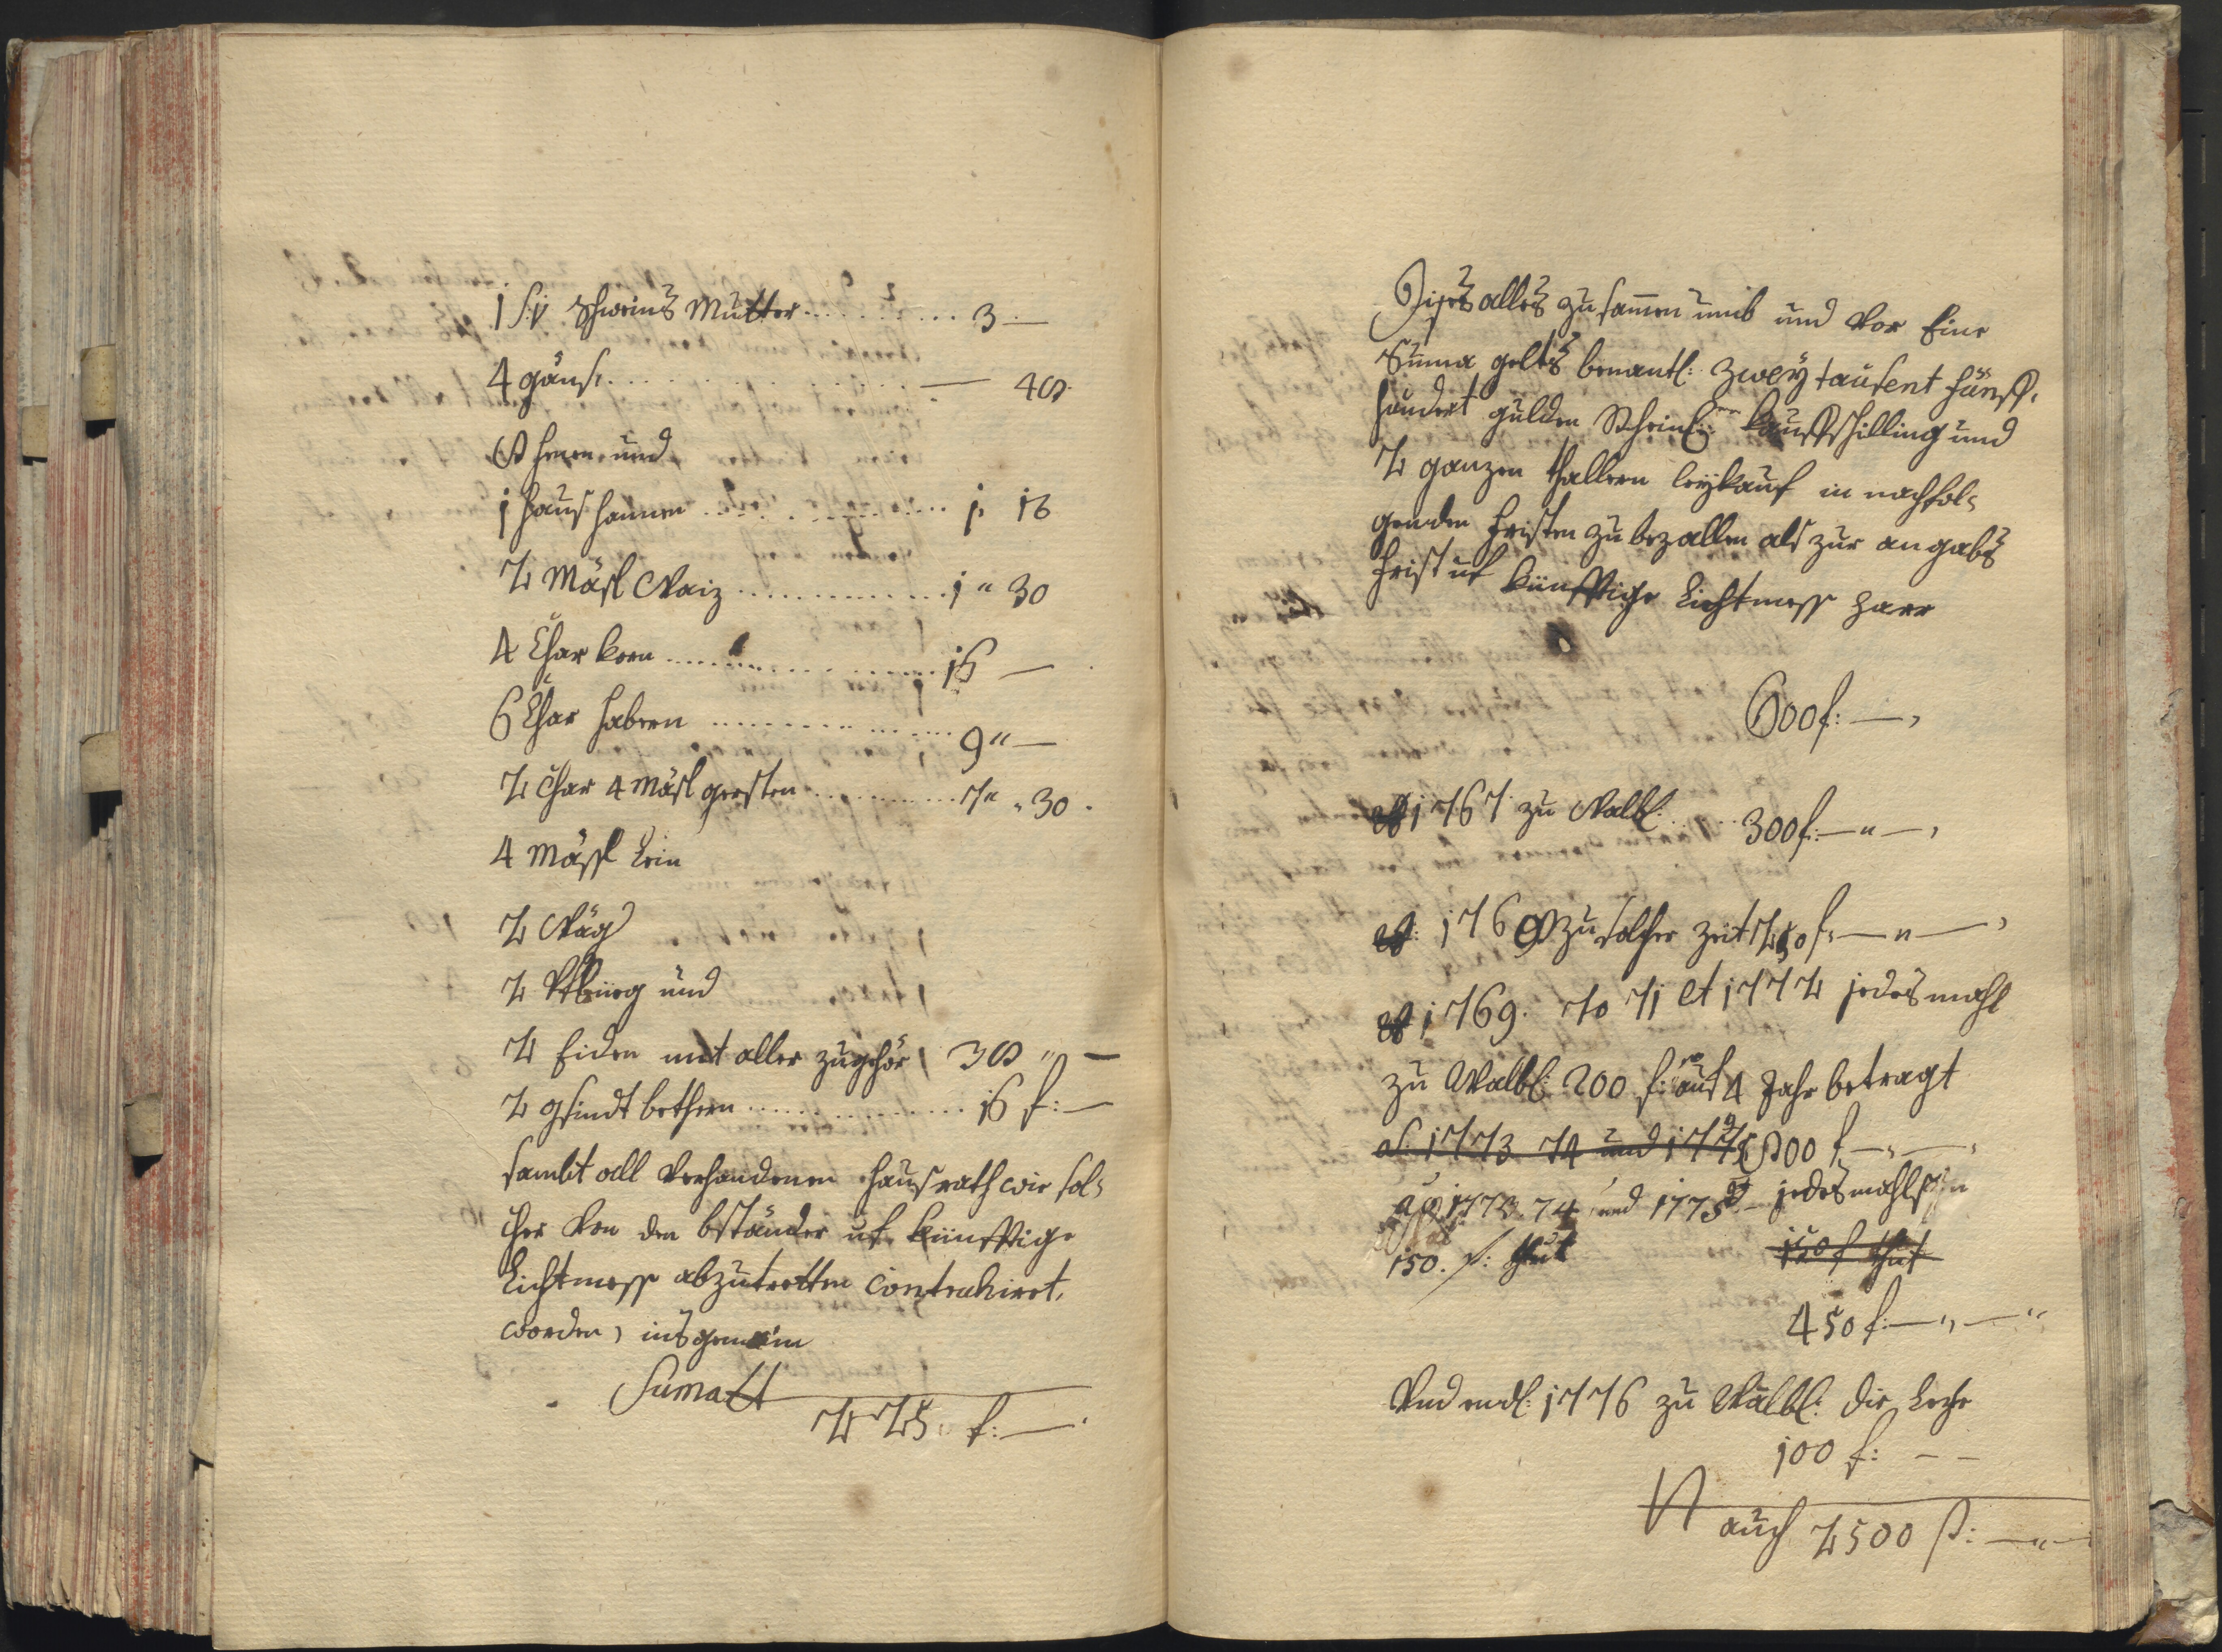 1 s:v: Schweins Mutter . . . . . . . . . . 3 —
4 gäns . . . . . . . . . . . . . . . . — 48
8 henen und
1 haus hannen . . . . . . . . . . . . 1 16
2 Mäsl Waiz . . . . . . . . . . . . . 1 " 30
4 Char korn . . . . . . . . . . . . . 16 —
6 Char habern . . . . . . . . . . . . 9 " —
2 Char 4 Mäsl gersten . . . . . . . . 7 " 30
4 Mässl Lein
2 Wäg
2 Pflüeg und
2 Eiden mit aller zugehör 38 " —
2 gsindt bethern . . . . . . . . . . 16 f: —
sambt all verhandenen hausrath wie sol-
cher von den bständer uf künfftige
Lichtmess abzutretten contrahirt
worden, ins gemein
Suma
225 f: —
Dises alles zusamen umb und vor Eine
Suma gelts benantl: zwey tausent fünff-
hundert gulden Rheinl: kauffschilling und
2 ganzen thallern leykauf in nachfol-
genden fristen zu bezallen als zur angabs
frist uf künfftige Lichtmess paar
600 f: —
1767 zu Walb: . . . 300 f: — " —
1768 zu solcher zeit 250 f: — " —
1769. 70 71 et 1772 jedesmahl
zu Walb: 200 f: auf 4 Jahr betragt
ao: 1773 74 und 1775 800 f: — " —
ao 1773. 74 und 1775 jedesmahls
150. f: thut 150 f thut
450 f: — " — "
Und endl: 1776 zu Walb: die Leze
100 f: — —
auch 2500 f: — " —